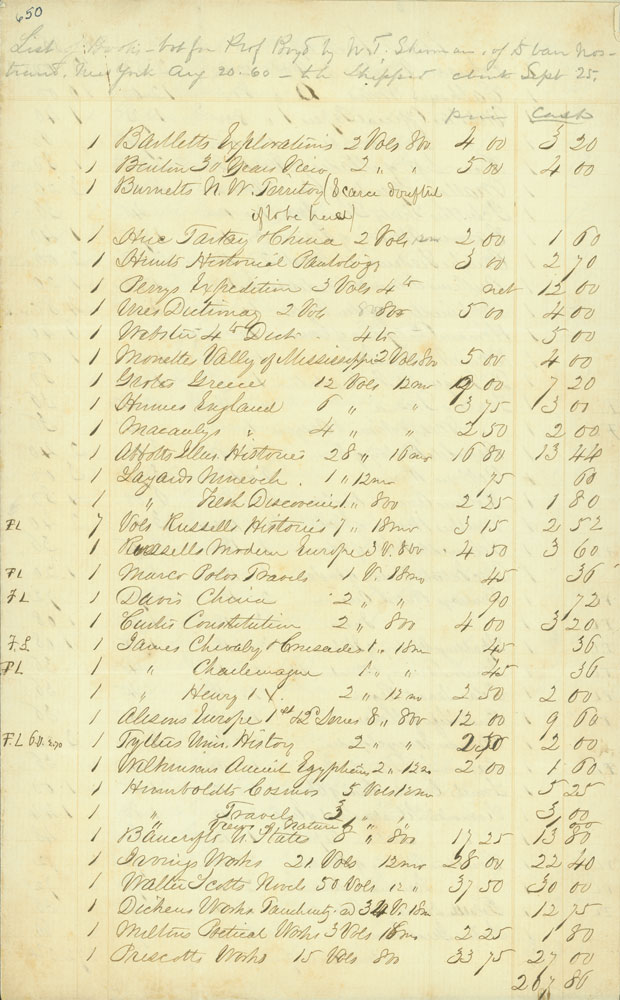 650
List of Books - bot for Prof Boyd by W. T. Sherman, of D Van Nos-
trand. New York Aug 20. 60 - to be Shipped about Sept 25.
price Cash
1 Bartletts Explorations 2 Vols 8vo 4 00 3 20
1 Benton 30 Years View 2 " " 5 00 4 00
1 Burnetts N. W. Territory (Scarce doubtful
if to be had)
1 Huc Tartary & China 2 Vols 2 00 1 60
1 Hunts Historical 3 00 2 70
1 Perrys Expedition 3 Vols 4to net 12 00
1 Ures Dictionary 2 Vol 8vo 5 00 4 00
1 Webster 4to Dict. 4to 5 00
1 Monette Valley of Mississippi 2 Vols 8vo 5 00 4 00
1 Grotes Greece 12 Vols 12mo 9 00 7 20
1 Humes England 6 " " 3 75 3 00
1 Macaulys " 4 " " 2 50 2 00
1 Abbotts Illus. Histories 28 " 16mo 16 80 13 44
1 Layards Nineveh . 1 " 12mo 75 60
1 " Fresh Discoveries 1 " 8vo 2 25 1 80
F L 7 Vols Russells Histories 7 " 18mo 3 15 2 52
1 Russells Modern Europe 3 V. 8vo 4 50 3 60
F L 1 Marco Polos Travels 1 V. 18mo 45 36
F L 1 Davis China 2 " " 90 72
1 Curtis Constitution 2 " 8vo 4 00 3 20
F. L 1 James Chivalry & Crusades 1 " 18m 45 36
F L 1 " Charlemagne 1 " " 45 36
1 " Henry IV. 2 " 12mo 2 50 2 00
1 Alisons Europe 1st & 2d Series 8 " 8vo 12 00 9 60
F. L 6.V. 2.70 1 Tytlers Univ. History 2 " " 2 50 2 00
1 Wilkinsons Ancient Egyptians 2 " 12m 2 00 1 60
1 Humboldts Cosmos 5 Vols 12mo 5 25
1 " Travels 3 " " 3 00
Views of Nature 1 " "
1 Bancrofts U States 8 " 8vo 17 25 13 80
1 Irvings Works 21 Vols 12mo 28 00 22 40
1 Walter Scotts Novels 50 Vols 12 " 37 50 30 00
1 Dickens Works Tauchnitz ed 34 V. 18m 12 75
1 Miltons Poetical Works 3 Vols 18mo 2 25 1 80
1 Prescotts Works 15 Vols 8vo 33 75 27 00
267 86